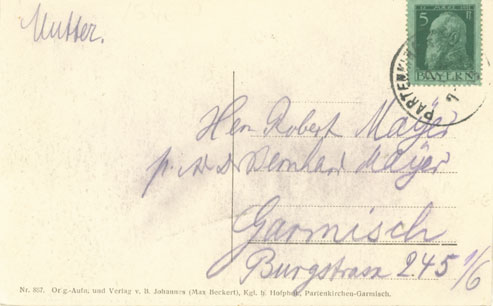 Mutter.
5
BAYERN
PARTENKI
Herrn Robert Mayer
p. Adr Bernhard Mayer
Garmisch
Burgstrasse 245 1/6
Nr. 887. Orig.-Aufn. und Verlag v. B. Johannes (Max Beckert), Kgl. b. Hofphot., Partenkirchen-Garmisch.